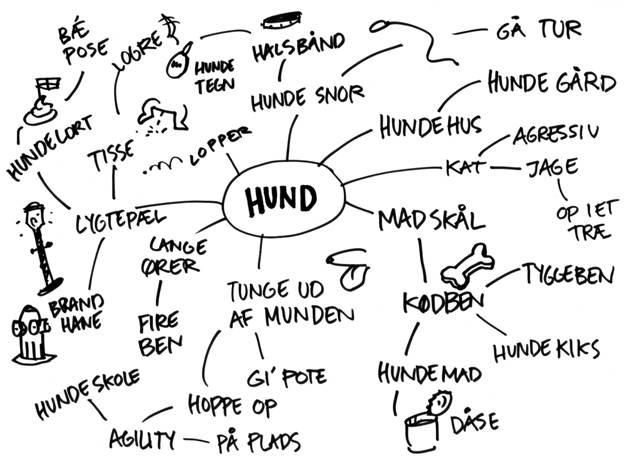 BÆ
POSE
LOGRE
HUNDE
TEGN
HALSBÅND
GÅ TUR
HUNDE SNOR
HUNDE GÅRD
HUNDELORT
TISSE
LOPPER
HUNDEHUS
AGRESSIV
KAT
JAGE
OP I ET
TRÆ
HUND
LYGTEPÆL
MADSKÅL
LANGE
ØRER
TUNGE UD
AF MUNDEN
KØDBEN
TYGGEBEN
BRAND
HANE
FIRE
BEN
HUNDE KIKS
HUNDESKOLE
GI' POTE
HUNDEMAD
HOPPE OP
AGILITY
PÅ PLADS
DÅSE